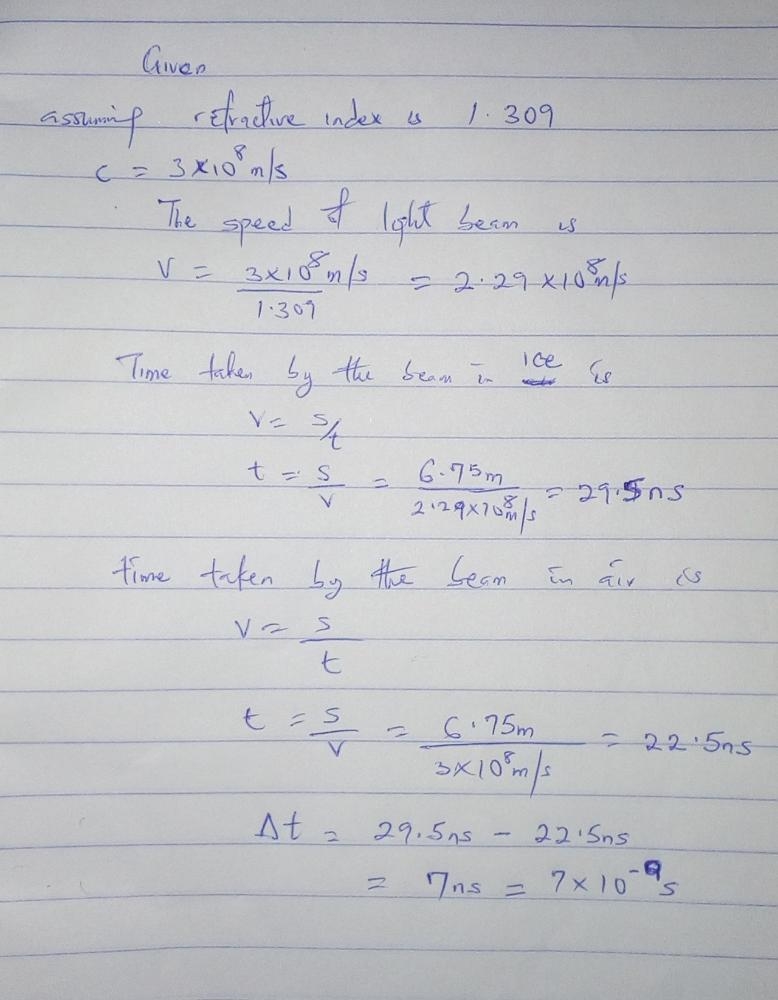 Given
assuming refractive index is 1.309
c = 3×10⁸ m/s
The speed of light beam is
V = 3×10⁸ m/s / 1.309 = 2.29 ×10⁸ m/s
Time taken by the beam in ice is
V = s/t
t = s/v = 6.75m / 2.29×10⁸ m/s = 29.5ns
time taken by the beam in air is
V = s/t
t = s/v = 6.75m / 3×10⁸ m/s = 22.5ns
Δt = 29.5ns - 22.5ns
= 7ns = 7×10⁻⁹s